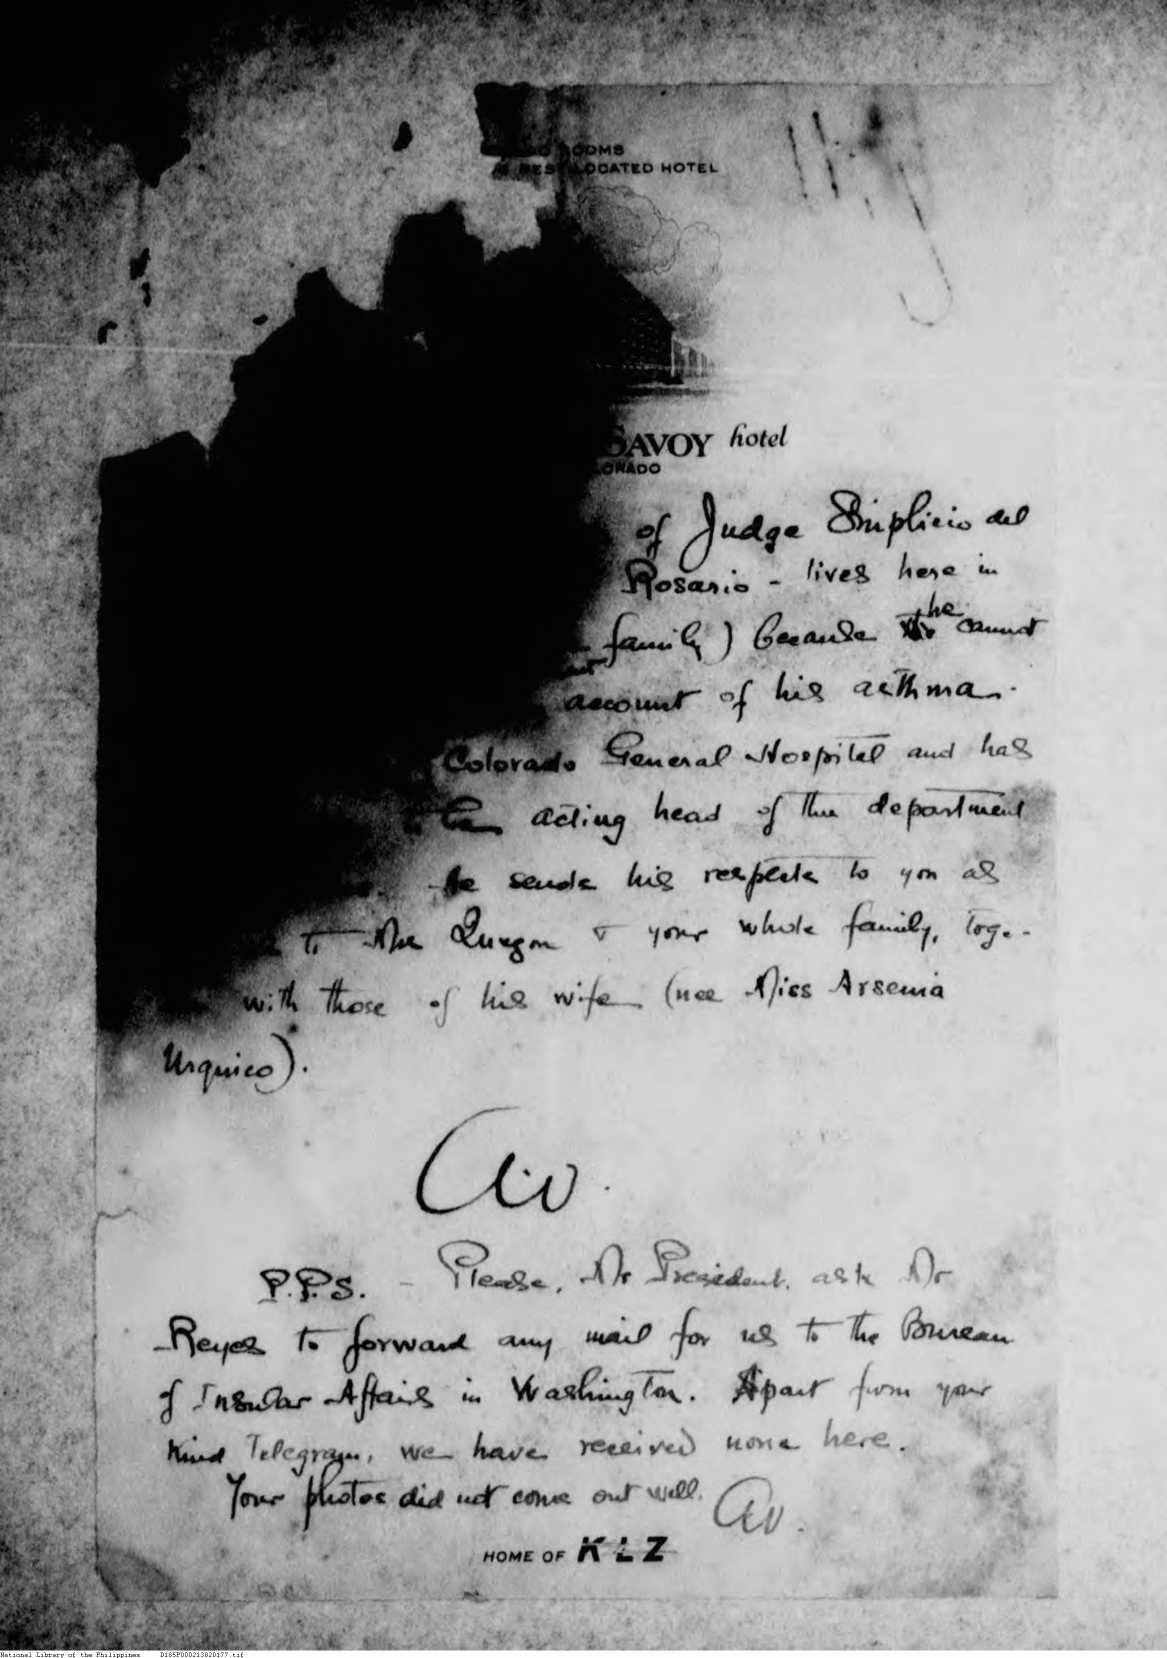 ROOMS
BEST LOCATED HOTEL
SAVOY hotel
COLORADO
of Judge Simplicio del
Rosario - lives here in
family) because he cannot
account of his asthma.
Colorado General Hospital and has
acting head of the department
He sends his respects to you as
to the & your whole family, toge-
with those of his wife (nee Miss Arsenia
Urquico).
P.P.S. - Please, Mr President, ask Mr
Reyes to forward any mail for us to the Bureau
of Insular Affairs in Washington. Apart from your
kind Telegram, we have received none here.
Your photos did not come out well.
HOME OF KLZ
National Library of the Philippines D185P000213820177.tif